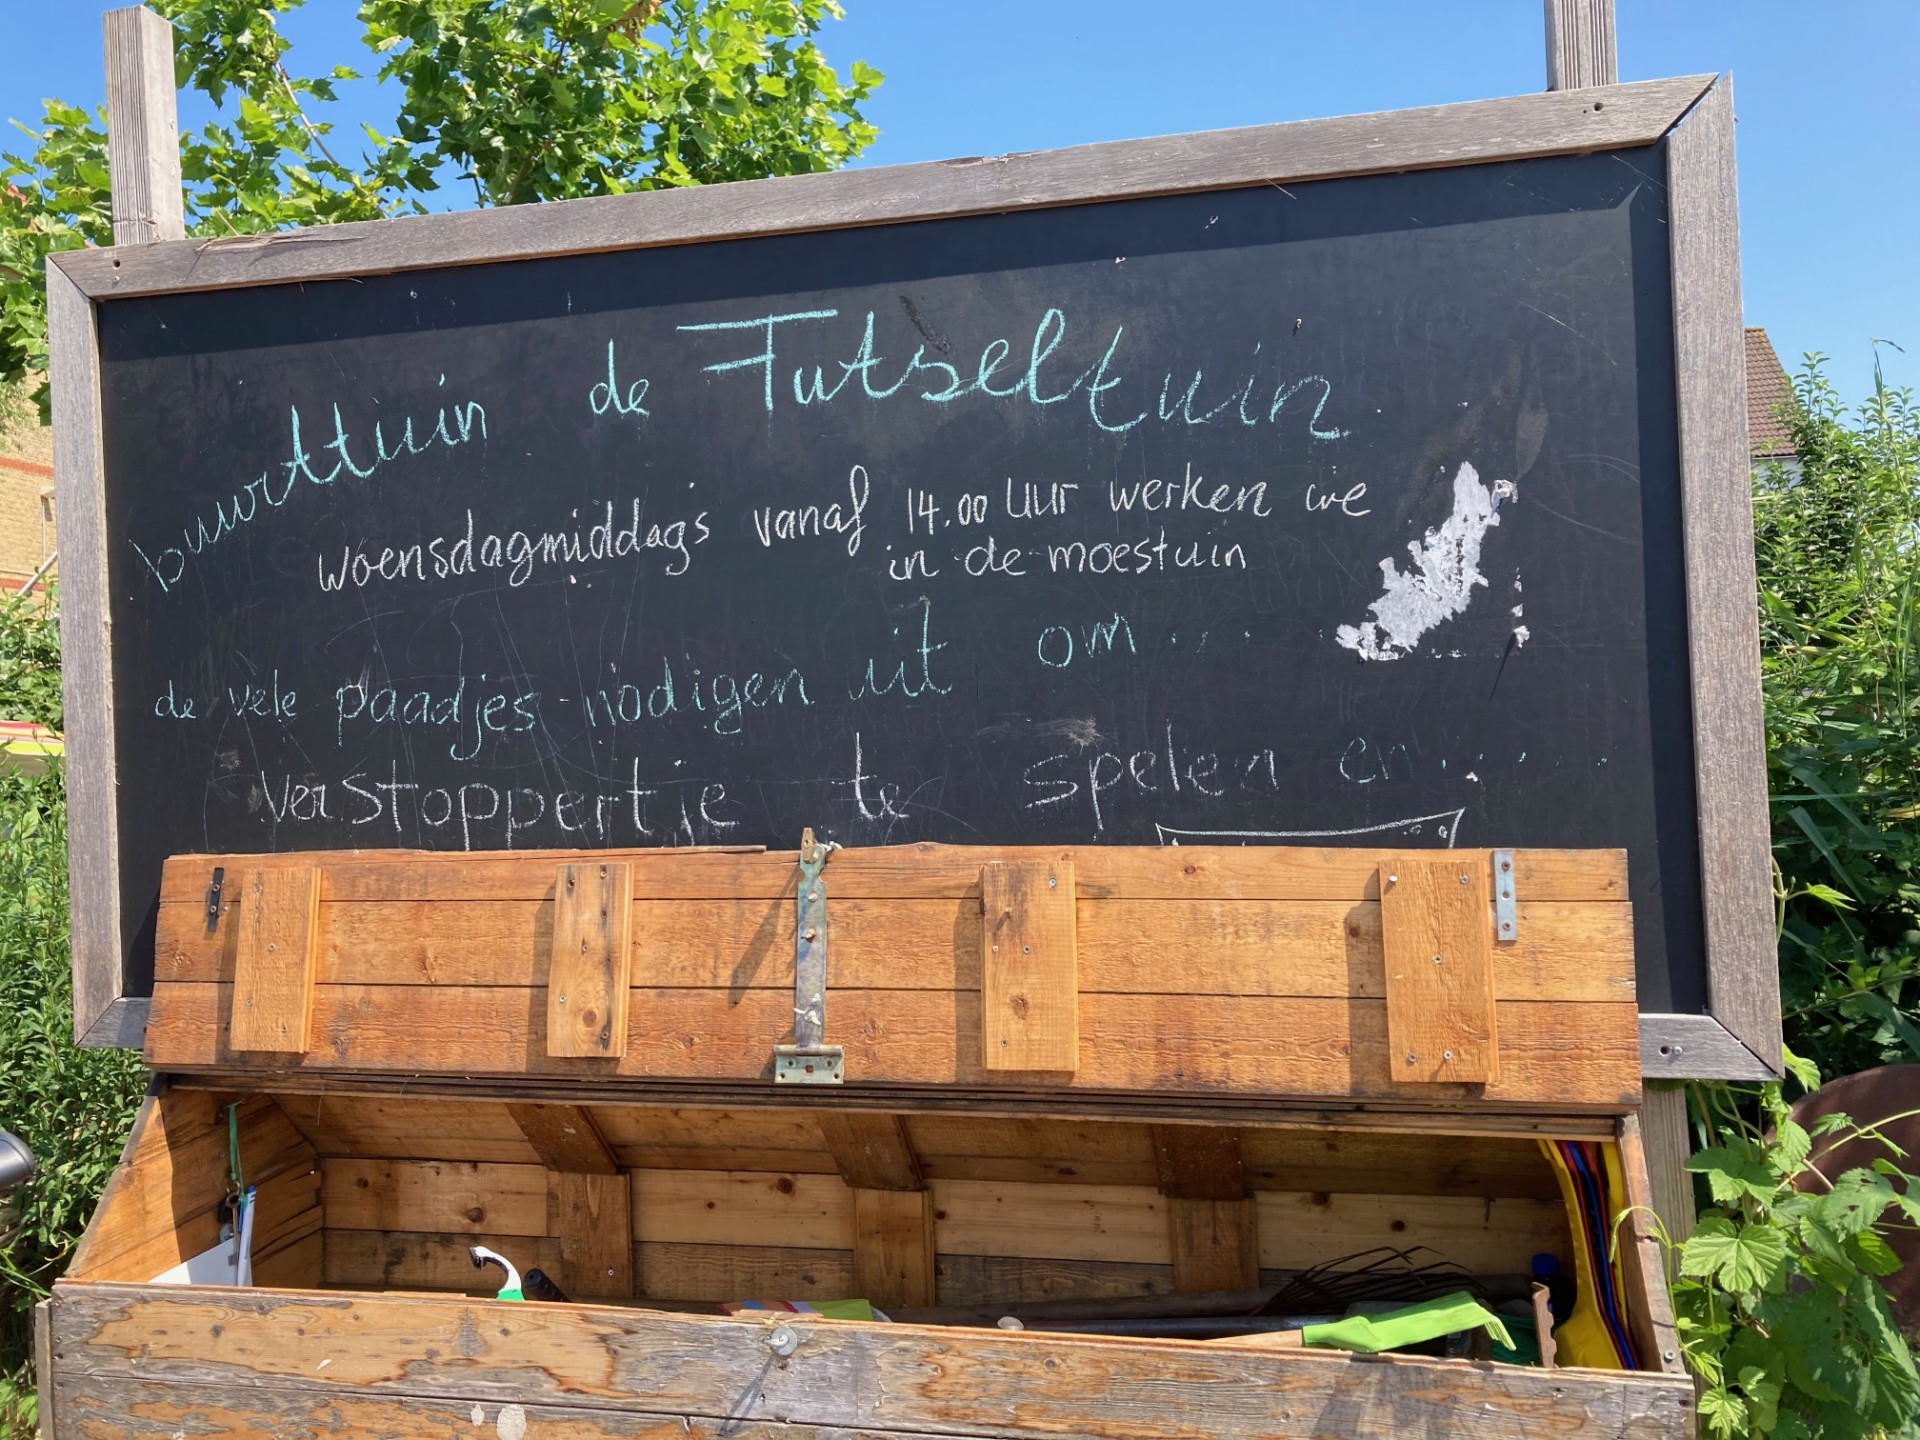 buurttuin de Futseltuin
woensdagmiddags vanaf 14.00 uur werken we
in de moestuin
de vele paadjes nodigen uit om...
verstoppertje te spelen en.....